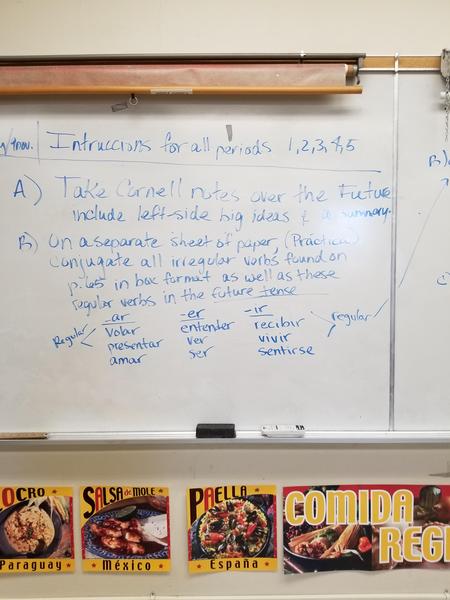 /9nov. Intruccions for all periods 1,2,3,4,5
A) Take Cornell notes over the Future
include left-side big ideas & a summary.
B) On a separate sheet of paper, (Práctica)
Conjugate all irregular verbs found on
p.265 in box format as well as these
regular verbs in the future tense
-ar -er -ir
Regular volar entender recibir regular
presentar ver vivir
amar ser sentirse
B)
OCRO
Paraguay
SALSA de MOLE
México
PAELLA
España
COMIDA
REGI